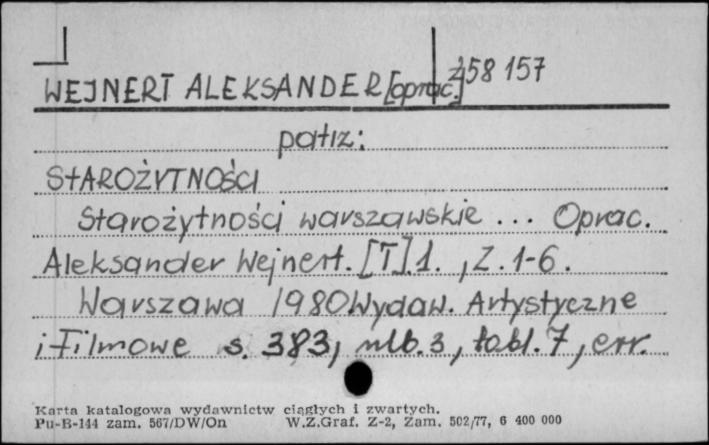 WEJNERT ALEKSANDER [oprac.] 258 157
patrz:
STAROŻYTNOŚCI
Starożytności warszawskie ... Oprac.
Aleksander Wejnert. [T]. 1. , Z. 1-6.
Warszawa 1980 Wydaw. Artystyczne
i Filmowe s. 383, nlb. 3, tabl. 7, err.
Karta katalogowa wydawnictw ciągłych i zwartych.
Pu-B-144 zam. 567/DW/On W.Z.Graf. Z-2, Zam. 502/77, 6 400 000